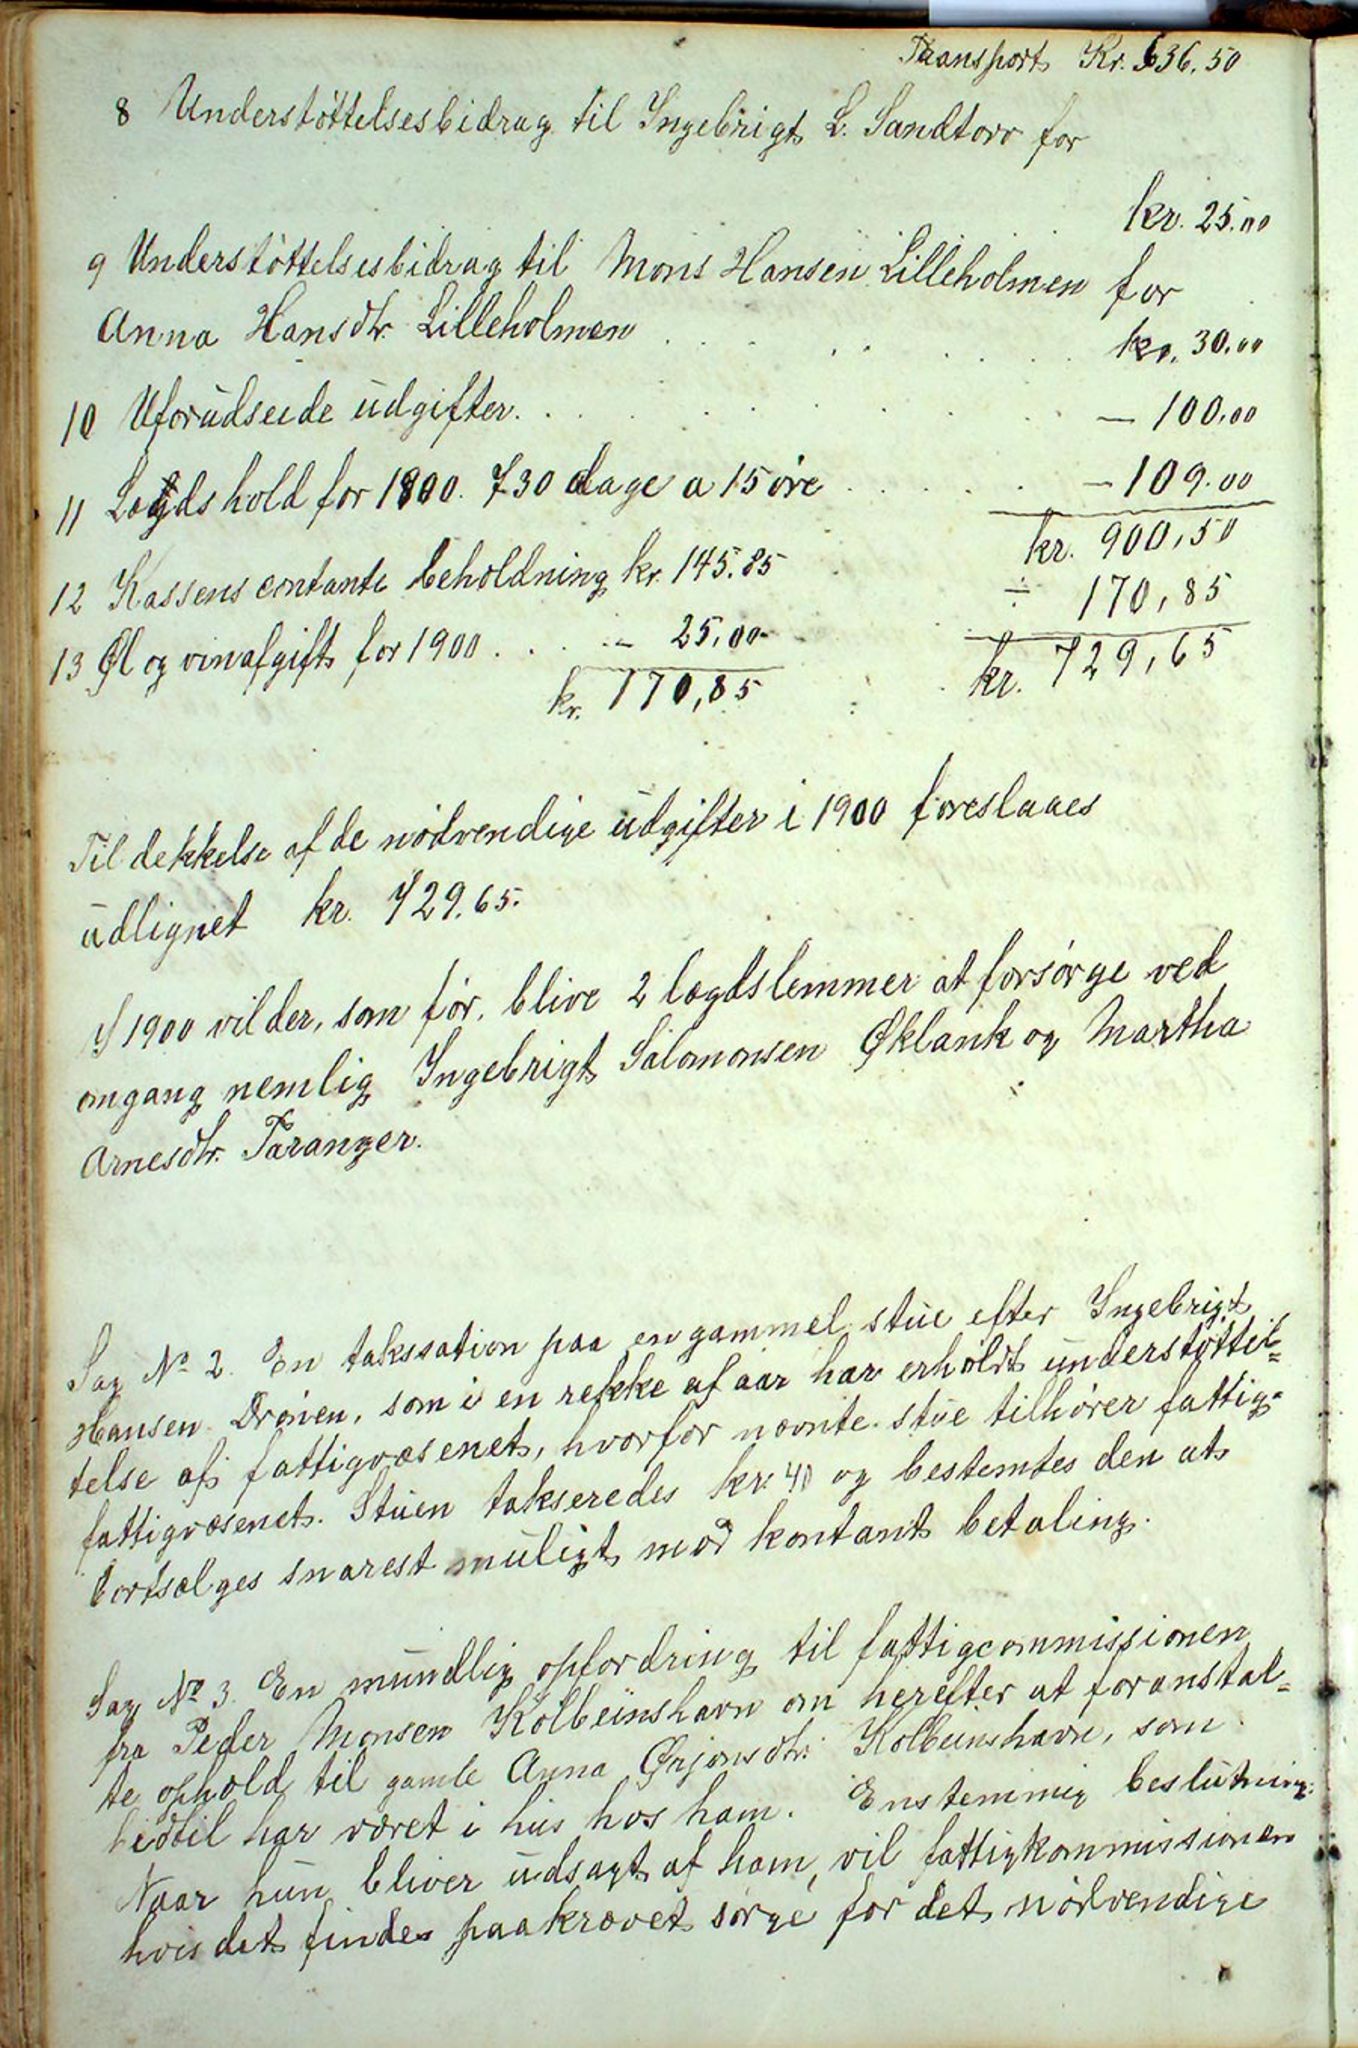 Transport Kr. 636.50
8 Understöttelsesbidrag til Ingebrigt L. Sandtorv for
kr. 25.00
9 Understöttelsesbidrag til Mons Hansen Lilleholmen for
Anna Hansdtr. Lilleholmen . . . . . kr. 30.00
10 Uforudseede udgifter. . . . . . . — 100.00
11 Lægdshold for 1800. 730 dage a 15 öre . . . . — 109.00
kr. 900,50
12 Kassens contante beholdning kr. 145.85 ÷ 170,85
13 Øl og vinafgift for 1900 . . . . — 25.00 kr. 729,65
kr. 170,85
Til dekkelse af de nödvendige udgifter i 1900 foreslaaes
udlignet kr. 729.65.
I 1900 vil der, som för, blive 2 lægdslemmer at forsörge ved
omgang nemlig Ingebrigt Salomonsen Øklank og Martha
Arnesdtr. Taranger.
Sag No 2. En takssation paa en gammel stue efter Ingebrigt
Hansen Drönen, som i en rekke af aar har erholdt understöttel=
telse af fattigvæsenet, hvorfor nævnte stue tilhörer fattig=
fattigvæsenet. Stuen takseredes kr. 40 og bestemtes den at
bortsælges snarest muligt mod kontant betaling.
Sag No 3. En mundlig opfordring til fattigcommissionen
fra Peder Monsen Kolbeinshavn om herefter at foranstal=
te ophold til gamle Anna Ørjansdtr. Kolbeinshavn, som
hidtil har været i hus hos ham. Enstemmig beslutning:
Naar hun bliver udsagt af ham, vil fattigkommissionen
hvis det findes paakrævet sörge for det nödvendige